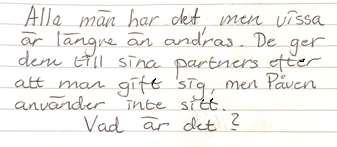 Alla män har det, men vissa
är längre än andras. De ger
dem till sina partners efter
att man gift sig, men Påven
använder inte sitt.
Vad är det?